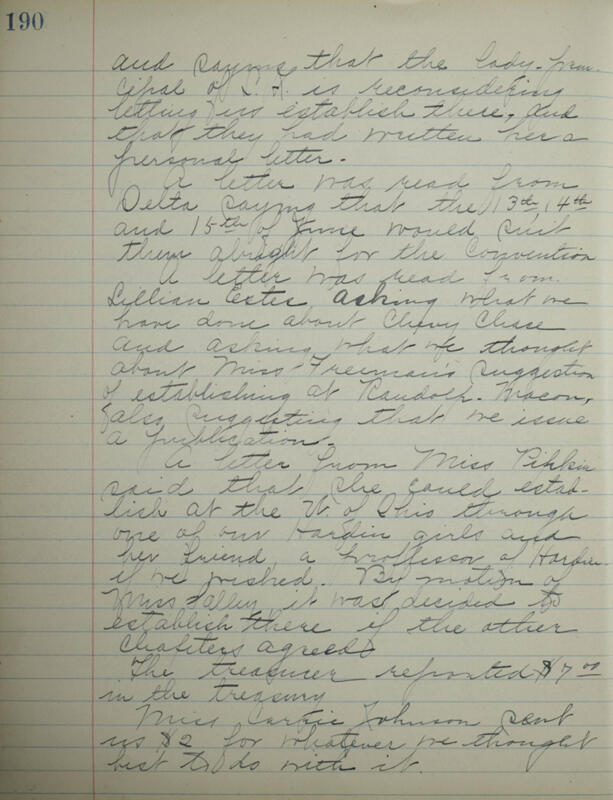 190
and saying that the lady prin-
cipal of L. H. is reconsidering
letting us establish there, and
that they had written her a
personal letter.
A letter was read from
Delta saying that the 13th, 14th
and 15th of June would suit
them alright for the Convention
A letter was read from
Lillian Estes asking what we
have done about Chevy Chase
and asking what we thought
about Miss Freeman's suggestion
of establishing at Randolph-Macon,
also suggesting that we issue
a publication.
A letter from Miss
said that she could estab-
lish at the U. of through
one of our Hardin girls and
her friend a proffessor of Hardin
if we wished. By motion of
Miss Talley it was decided to
establish there if the other
Chapters agreed.
The treasurer reported $7 00
in the treasury
Miss Johnson sent
us $2 for whatever we thought
best to do with it.